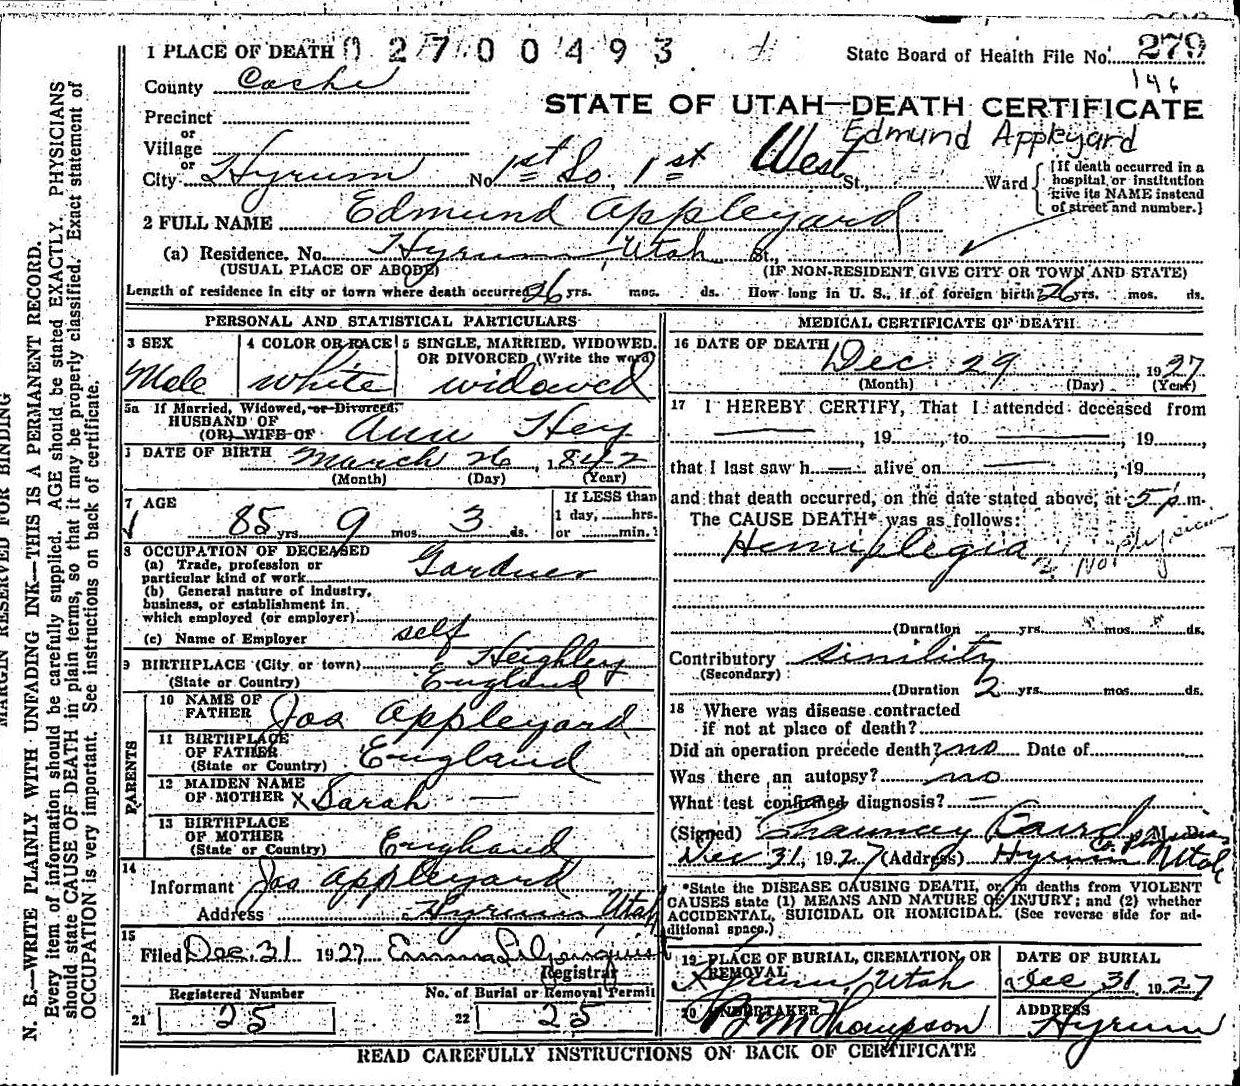 1 PLACE OF DEATH 02700493 State Board of Health File No. 279
146
County Cache
STATE OF UTAH—DEATH CERTIFICATE
Precinct
or
Village
Edmund Appleyard
or
City Hyrum No. 1st So. 1st West St., Ward [If death occurred in a hospital or institution give its NAME instead of street and number.]
2 FULL NAME Edmund Appleyard
(a) Residence. No. Hyrum, Utah St.,
(USUAL PLACE OF ABODE) (IF NON-RESIDENT GIVE CITY OR TOWN AND STATE)
Length of residence in city or town where death occurred 26 yrs. mos. ds. How long in U. S., if of foreign birth 26 yrs. mos. ds.
PERSONAL AND STATISTICAL PARTICULARS
3 SEX
Male
4 COLOR OR RACE
white
5 SINGLE, MARRIED, WIDOWED.
OR DIVORCED (Write the word)
widowed
5a If Married, Widowed, or Divorced,
HUSBAND OF
(OR) WIFE OF Ann Hey
DATE OF BIRTH March 26, 1842
(Month) (Day) (Year)
7 AGE
85 yrs 9 mos. 3 ds.
If LESS than
1 day, ......hrs.
or ......min.
8 OCCUPATION OF DECEASED
(a) Trade, profession or
particular kind of work Gardner
(b) General nature of industry,
business, or establishment in
which employed (or employer)
(c) Name of Employer self
9 BIRTHPLACE (City or town) Heighley
(State or Country) England
PARENTS
10 NAME OF
FATHER Jos Appleyard
11 BIRTHPLACE
OF FATHER
(State or Country) England
12 MAIDEN NAME
OF MOTHER x Sarah —
13 BIRTHPLACE
OF MOTHER
(State or Country) England
14
Informant Jos Appleyard
Address Hyrum Utah
15
Filed Dec. 31 1927 Emma Liljenquist
Registrar
Registered Number
21 25
No. of Burial or Removal Permit
22 25
MEDICAL CERTIFICATE OF DEATH
16 DATE OF DEATH Dec. 29, 1927
(Month) (Day) (Year)
17 I HEREBY CERTIFY, That I attended deceased from
—, 19...., to —, 19....,
that I last saw h — alive on —, 19....,
and that death occurred, on the date stated above, at 5 p.m.
The CAUSE DEATH* was as follows:
Hemiplegia
No physician
(Duration yrs. mos. ds.
Contributory sinility
(Secondary)
(Duration 2 yrs. mos. ds.
18 Where was disease contracted
if not at place of death?
Did an operation precede death? no Date of
Was there an autopsy? no
What test confirmed diagnosis? —
(Signed) Baird, M. D.
Co. Physician
Dec 31, 1927 (Address) Hyrum Utah
*State the DISEASE CAUSING DEATH, or in deaths from VIOLENT
CAUSES state (1) MEANS AND NATURE OF INJURY; and (2) whether
ACCIDENTAL, SUICIDAL OR HOMICIDAL. (See reverse side for ad-
ditional space.)
19 PLACE OF BURIAL, CREMATION, OR
REMOVAL
Hyrum, Utah
DATE OF BURIAL
Dec 31 1927
20 UNDERTAKER
J M Thompson
ADDRESS
Hyrum
READ CAREFULLY INSTRUCTIONS ON BACK OF CERTIFICATE
MARGIN RESERVED FOR BINDING
N. B.—WRITE PLAINLY WITH UNFADING INK—THIS IS A PERMANENT RECORD.
Every item of information should be carefully supplied. AGE should be stated EXACTLY. PHYSICIANS
should state CAUSE OF DEATH in plain terms, so that it may be properly classified. Exact statement of
OCCUPATION is very important. See instructions on back of certificate.